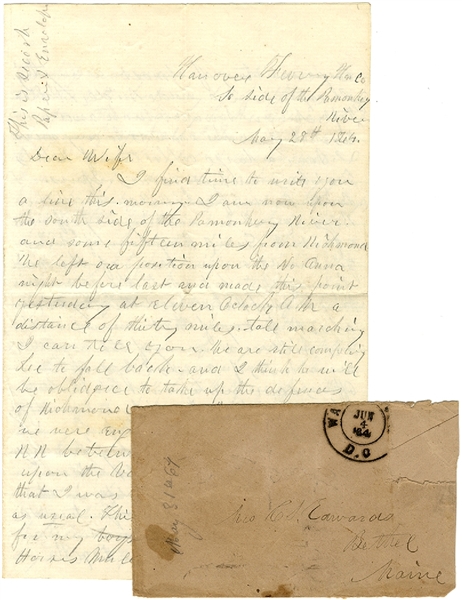 This is Secesh
Paper & Envelope
Hanover Ferry
So side of the Pamonkey
River
May 28th 1864.
Dear Wife
I find time to write you
a line this morning I am now upon
the south side of the Pamonkey River
and some fifteen miles from Richmond
We left our position upon the No Anna
night before last and made this point
yesterday at eleven Oclock A.M. a
distance of thirty miles. tall marching
I can tell you. We are still compelling
Lee to fall back and I think he will
be obliged to take up the defences
of Richmond
we were
RR between
upon the
that I was
as usual. The
for my boys
Horses
WA
JUN
4
D.C
May 31 1864
Edwards
Bethel
Maine